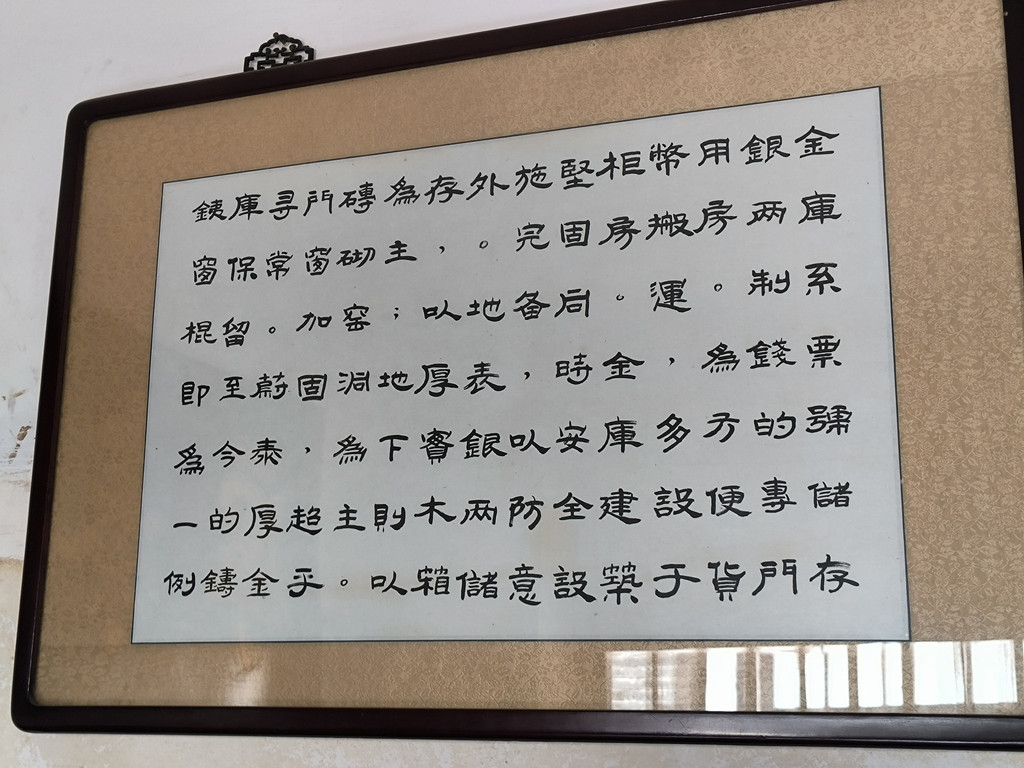 金庫系票號儲存
銀两制錢的專門
用房。為方便貨
幣搬運，多設于
柜房。金庫建築
堅固同時安全設
施完备，以防意
外。地表銀两儲
存，以厚寳木箱
為主；地下則以
磚砌窑洞為主。
門窗加固，超乎
寻常。蔚泰厚金
庫保留至今的鑄
銕窗棍即為一例